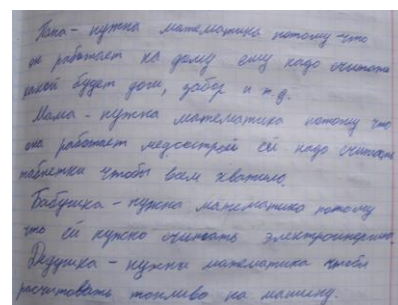 Папа - нужна математика потому что
он работает на дому ему надо считать
какой будет дом, забор и т.д.
Мама - нужна математика потому что
она работает медсестрой ей надо считать
таблетки чтобы всем хватило.
Бабушка - нужна математика потому
что ей нужно считать электроинергию.
Дедушка - нужна математика чтобы
расчитовать топливо на машину.